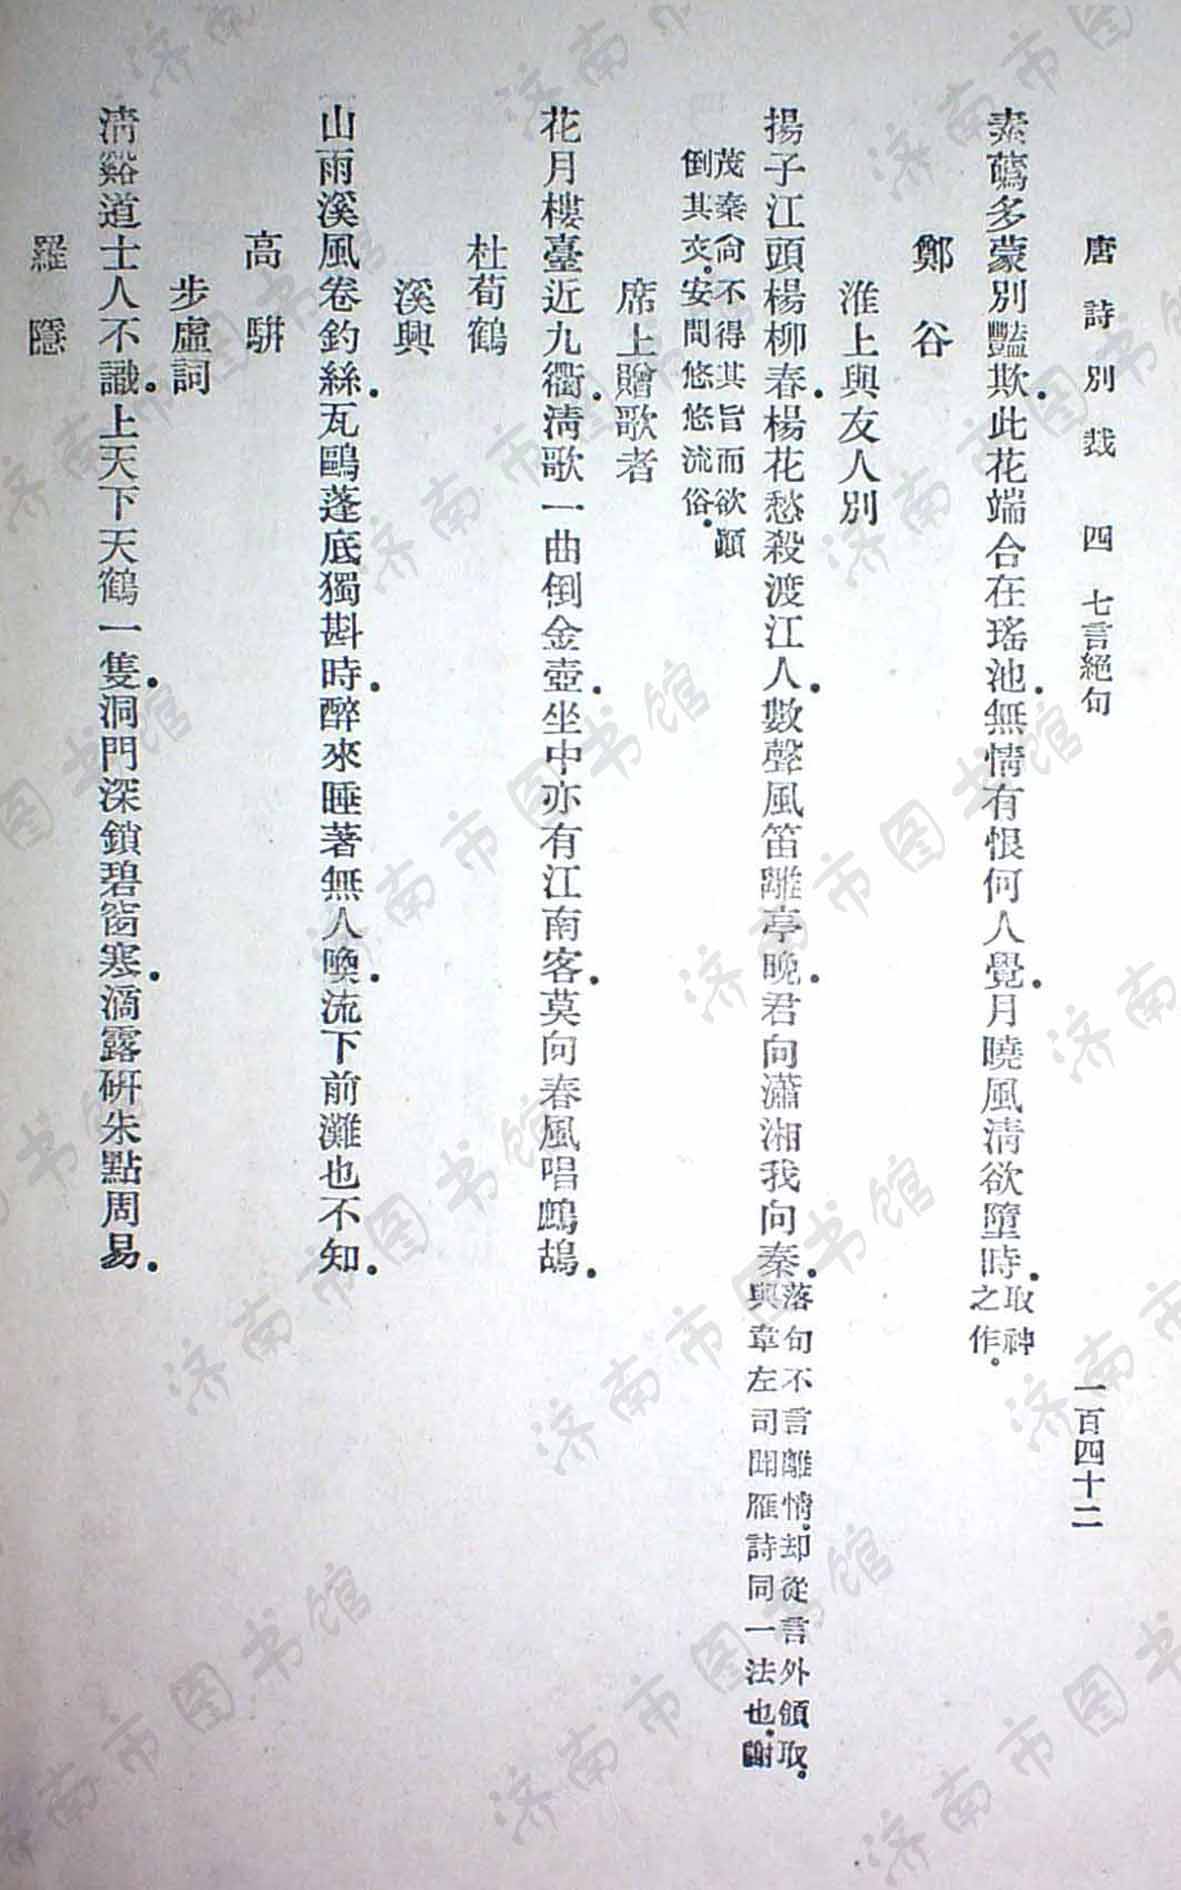 唐詩別裁 四 七言絕句 一百四十二
素蘤多蒙別豔欺．此花端合在瑤池．無情有恨何人覺．月曉風清欲墮時．取神
之作．
鄭谷
淮上與友人別
揚子江頭楊柳春．楊花愁殺渡江人．數聲風笛離亭晚．君向瀟湘我向秦．落句不言離情．却從言外領取．
與韋左司聞雁詩同一法也．謝
茂秦尙不得其旨而欲顚
倒其文．安問悠悠流俗．
席上贈歌者
花月樓臺近九衢．清歌一曲倒金壺．坐中亦有江南客．莫向春風唱鷓鴣．
杜荀鶴
溪興
山雨溪風卷釣絲．瓦甌蓬底獨斟時．醉來睡著無人喚．流下前灘也不知．
高駢
步虛詞
淸谿道士人不識．上天下天鶴一隻．洞門深鎖碧窗寒．滴露研朱點周易．
羅隱